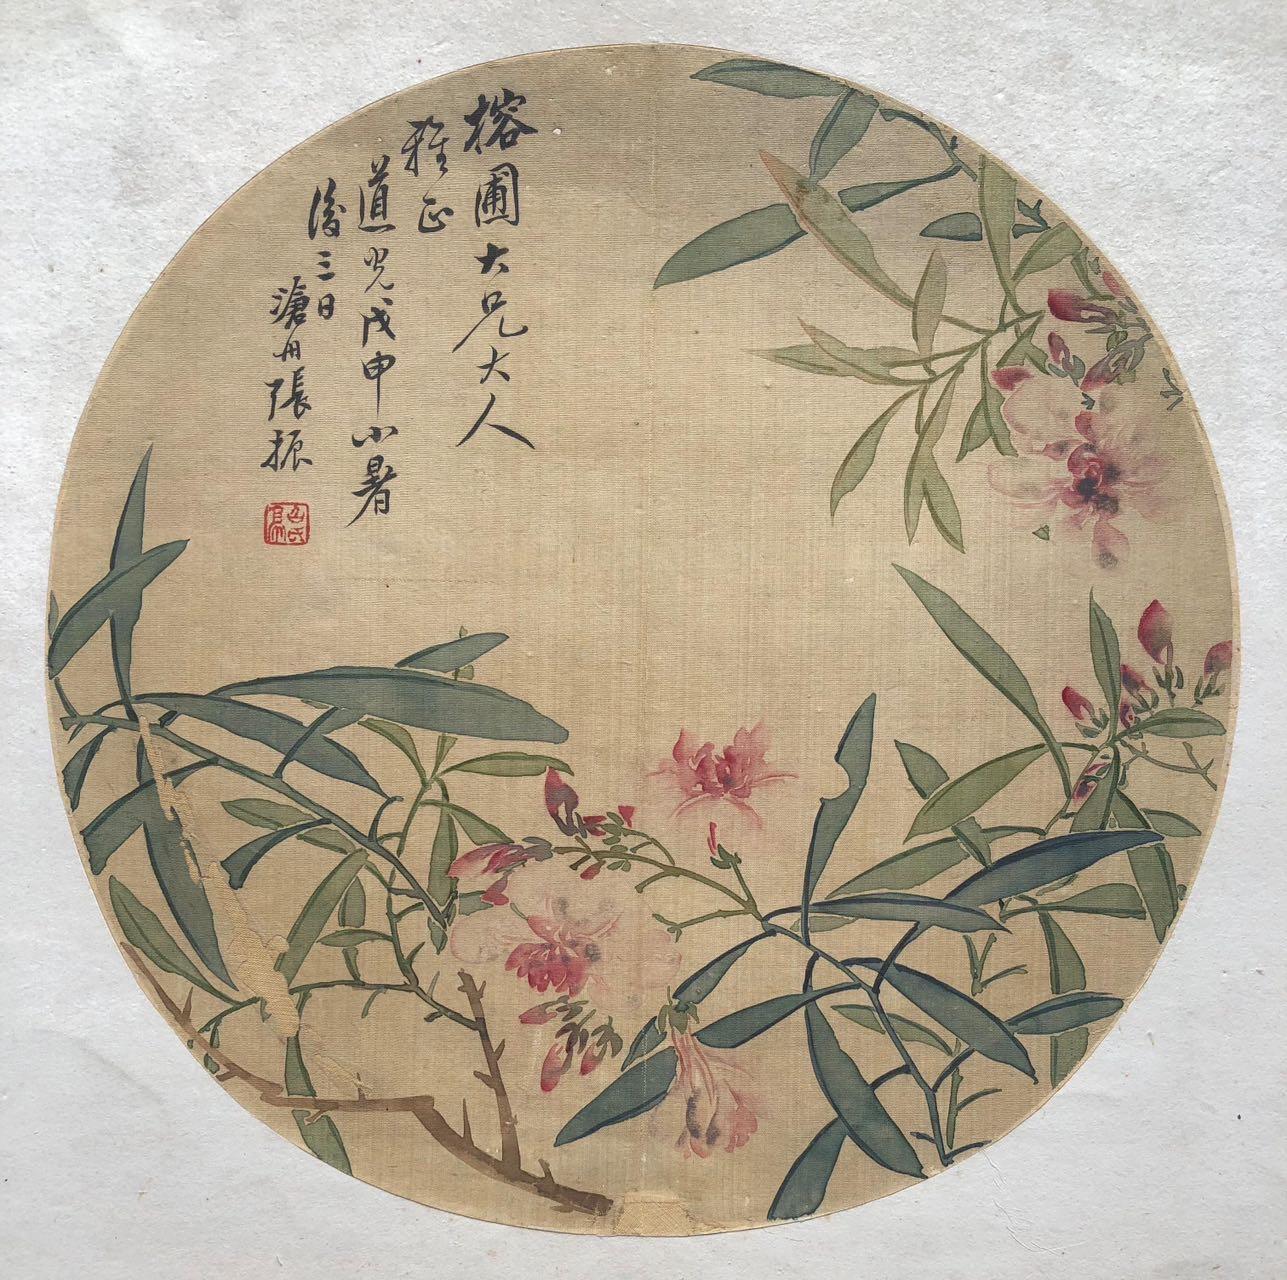 榕圃大兄大人
雅正
道光戊申小暑
後三日
滄舟張振